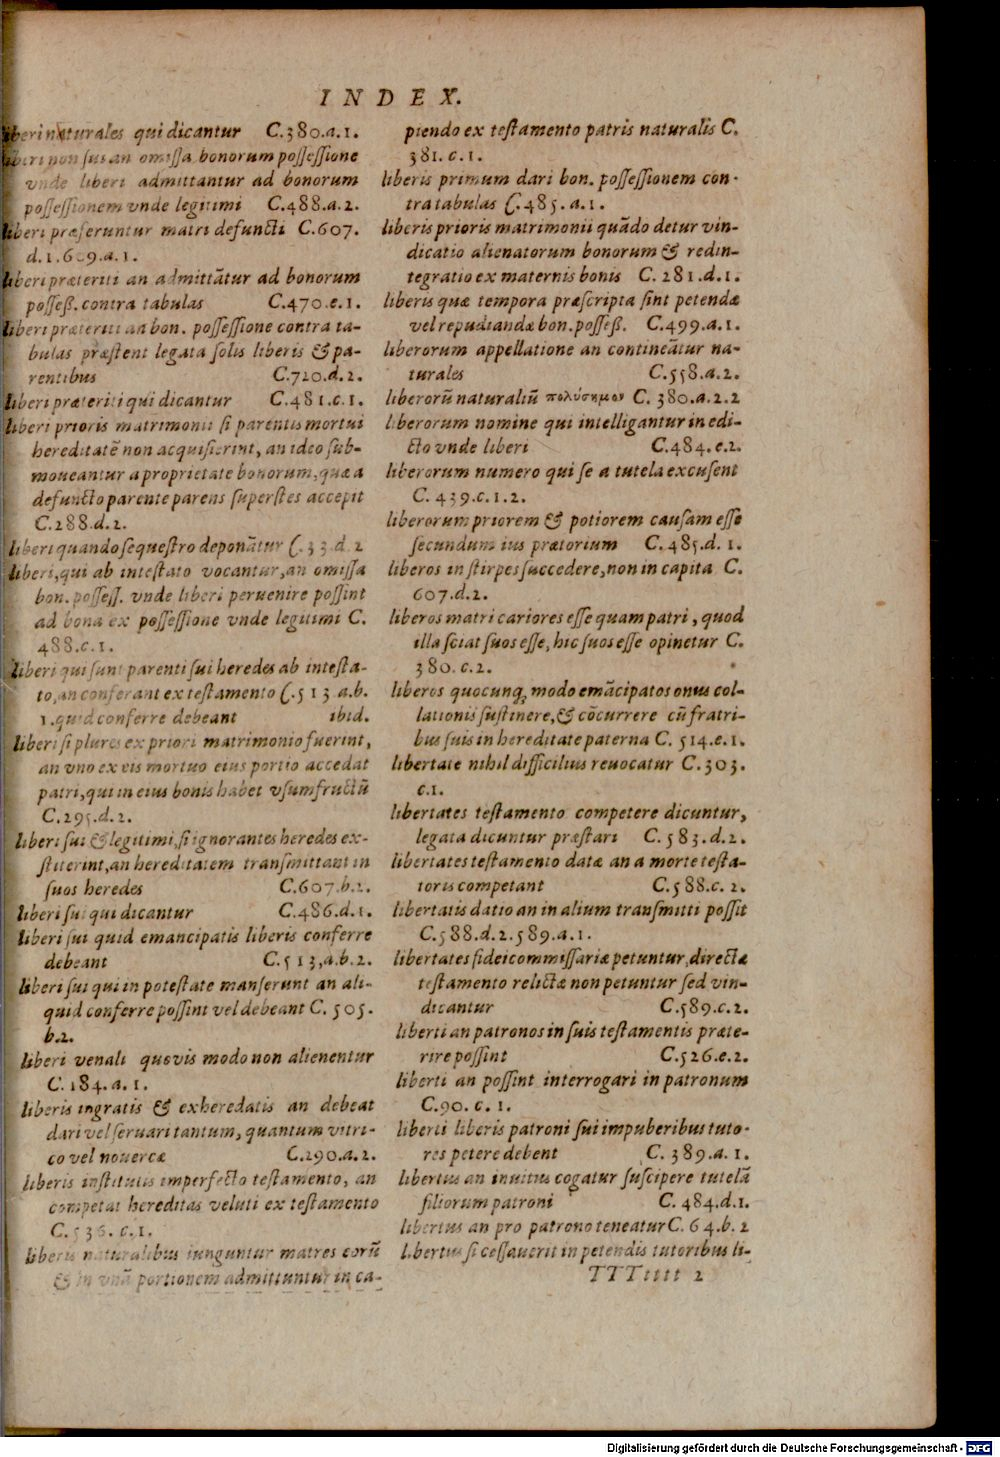 INDEX.
liberi naturales qui dicantur C.380.a.1.
liberi non sui an omissa bonorum possessione
vnde liberi admittantur ad bonorum
possessionem vnde legitimi C.488.a.2.
liberi præferuntur matri defuncti C.607.
d.1.609.a.1.
liberi præteriti an admittātur ad bonorum
posseß. contra tabulas C.470.e.1.
liberi præteriti an bon. possessione contra ta-
bulas præstent legata solis liberis & pa-
rentibus C.720.d.2.
liberi præteriti qui dicantur C.481.c.1.
liberi prioris matrimonii si parentis mortui
hereditatē non acquisierint, an ideo sub-
moueantur a proprietate bonorum, quæ a
defuncto parente parens superstes accepit
C.288.d.2.
liberi quando sequestro deponātur C.33.d.2
liberi, qui ab intestato vocantur, an omissa
bon. possess. vnde liberi peruenire possint
ad bona ex possessione vnde legitimi C.
488.c.1.
liberi qui sunt parenti sui heredes ab intesta-
to, an conferant ex testamento C.513 a.b.
1. quid conferre debeant ibid.
liberi si plures ex priori matrimonio fuerint,
an vno ex eis mortuo eius portio accedat
patri, qui in eius bonis habet vsumfructū
C.295.d.2.
liberi sui & legitimi, si ignorantes heredes ex-
stiterint, an hereditatem transmittant in
suos heredes C.607.b.2.
liberi sui qui dicantur C.486.d.1.
liberi sui quid emancipatis liberis conferre
debeant C.513,a.b.2.
liberi sui qui in potestate manserunt an ali-
quid conferre possint vel debeant C. 505.
b.2.
liberi venali quovis modo non alienentur
C.184.a.1.
liberis ingratis & exheredatis an debeat
dari vel seruari tantum, quantum vitri-
co vel nouercæ C.290.a.2.
liberis institutis imperfecto testamento, an
competat hereditas veluti ex testamento
C.536.c.1.
liberis naturalibus iunguntur matres eorū
& in vnā portionem admittuntur in ca-
piendo ex testamento patris naturalis C.
381.c.1.
liberis primum dari bon. possessionem con-
tra tabulas C.485.a.1.
liberis prioris matrimonii quādo detur vin-
dicatio alienatorum bonorum & redin-
tegratio ex maternis bonis C. 281.d.1.
liberis quæ tempora præscripta sint petendæ
vel repudiandæ bon. posseß. C.499.a.1.
liberorum appellatione an contineātur na-
turales C.558.a.2.
liberorū naturaliū πολύσημον C. 380.a.2.2
liberorum nomine qui intelligantur in edi-
cto vnde liberi C.484.e.2.
liberorum numero qui se a tutela excusent
C. 439.c.1.2.
liberorum priorem & potiorem causam esse
secundum ius prætorium C.485.d.1.
liberos in stirpes succedere, non in capita C.
607.d.2.
liberos matri cariores esse quam patri, quod
illa sciat suos esse, hic suos esse opinetur C.
380.c.2.
liberos quocunq; modo emācipatos onus col-
lationis sustinere, & cōcurrere cū fratri-
bus suis in hereditate paterna C. 514.e.1.
libertate nihil difficilius reuocatur C.303.
c.1.
libertates testamento competere dicuntur,
legata dicuntur præstari C. 583.d.2.
libertates testamento datæ an a morte testa-
toris competant C.588.c.2.
libertatis datio an in alium transmitti possit
C.588.d.2.589.a.1.
libertates fideicommissariæ petuntur, directæ
testamento relictæ non petuntur sed vin-
dicantur C.589.c.2.
liberti an patronos in suis testamentis præte-
rire possint C.526.e.2.
liberti an possint interrogari in patronum
C.90.c.1.
liberti liberis patroni sui impuberibus tuto-
res petere debent C. 389.a.1.
libertus an inuitus cogatur suscipere tutelā
filiorum patroni C. 484.d.1.
libertus an pro patrono teneatur C.64.b.2
libertus si cessauerit in petendis tutoribus li-
TTTtttt 2
Digitalisierung gefördert durch die Deutsche Forschungsgemeinschaft - DFG